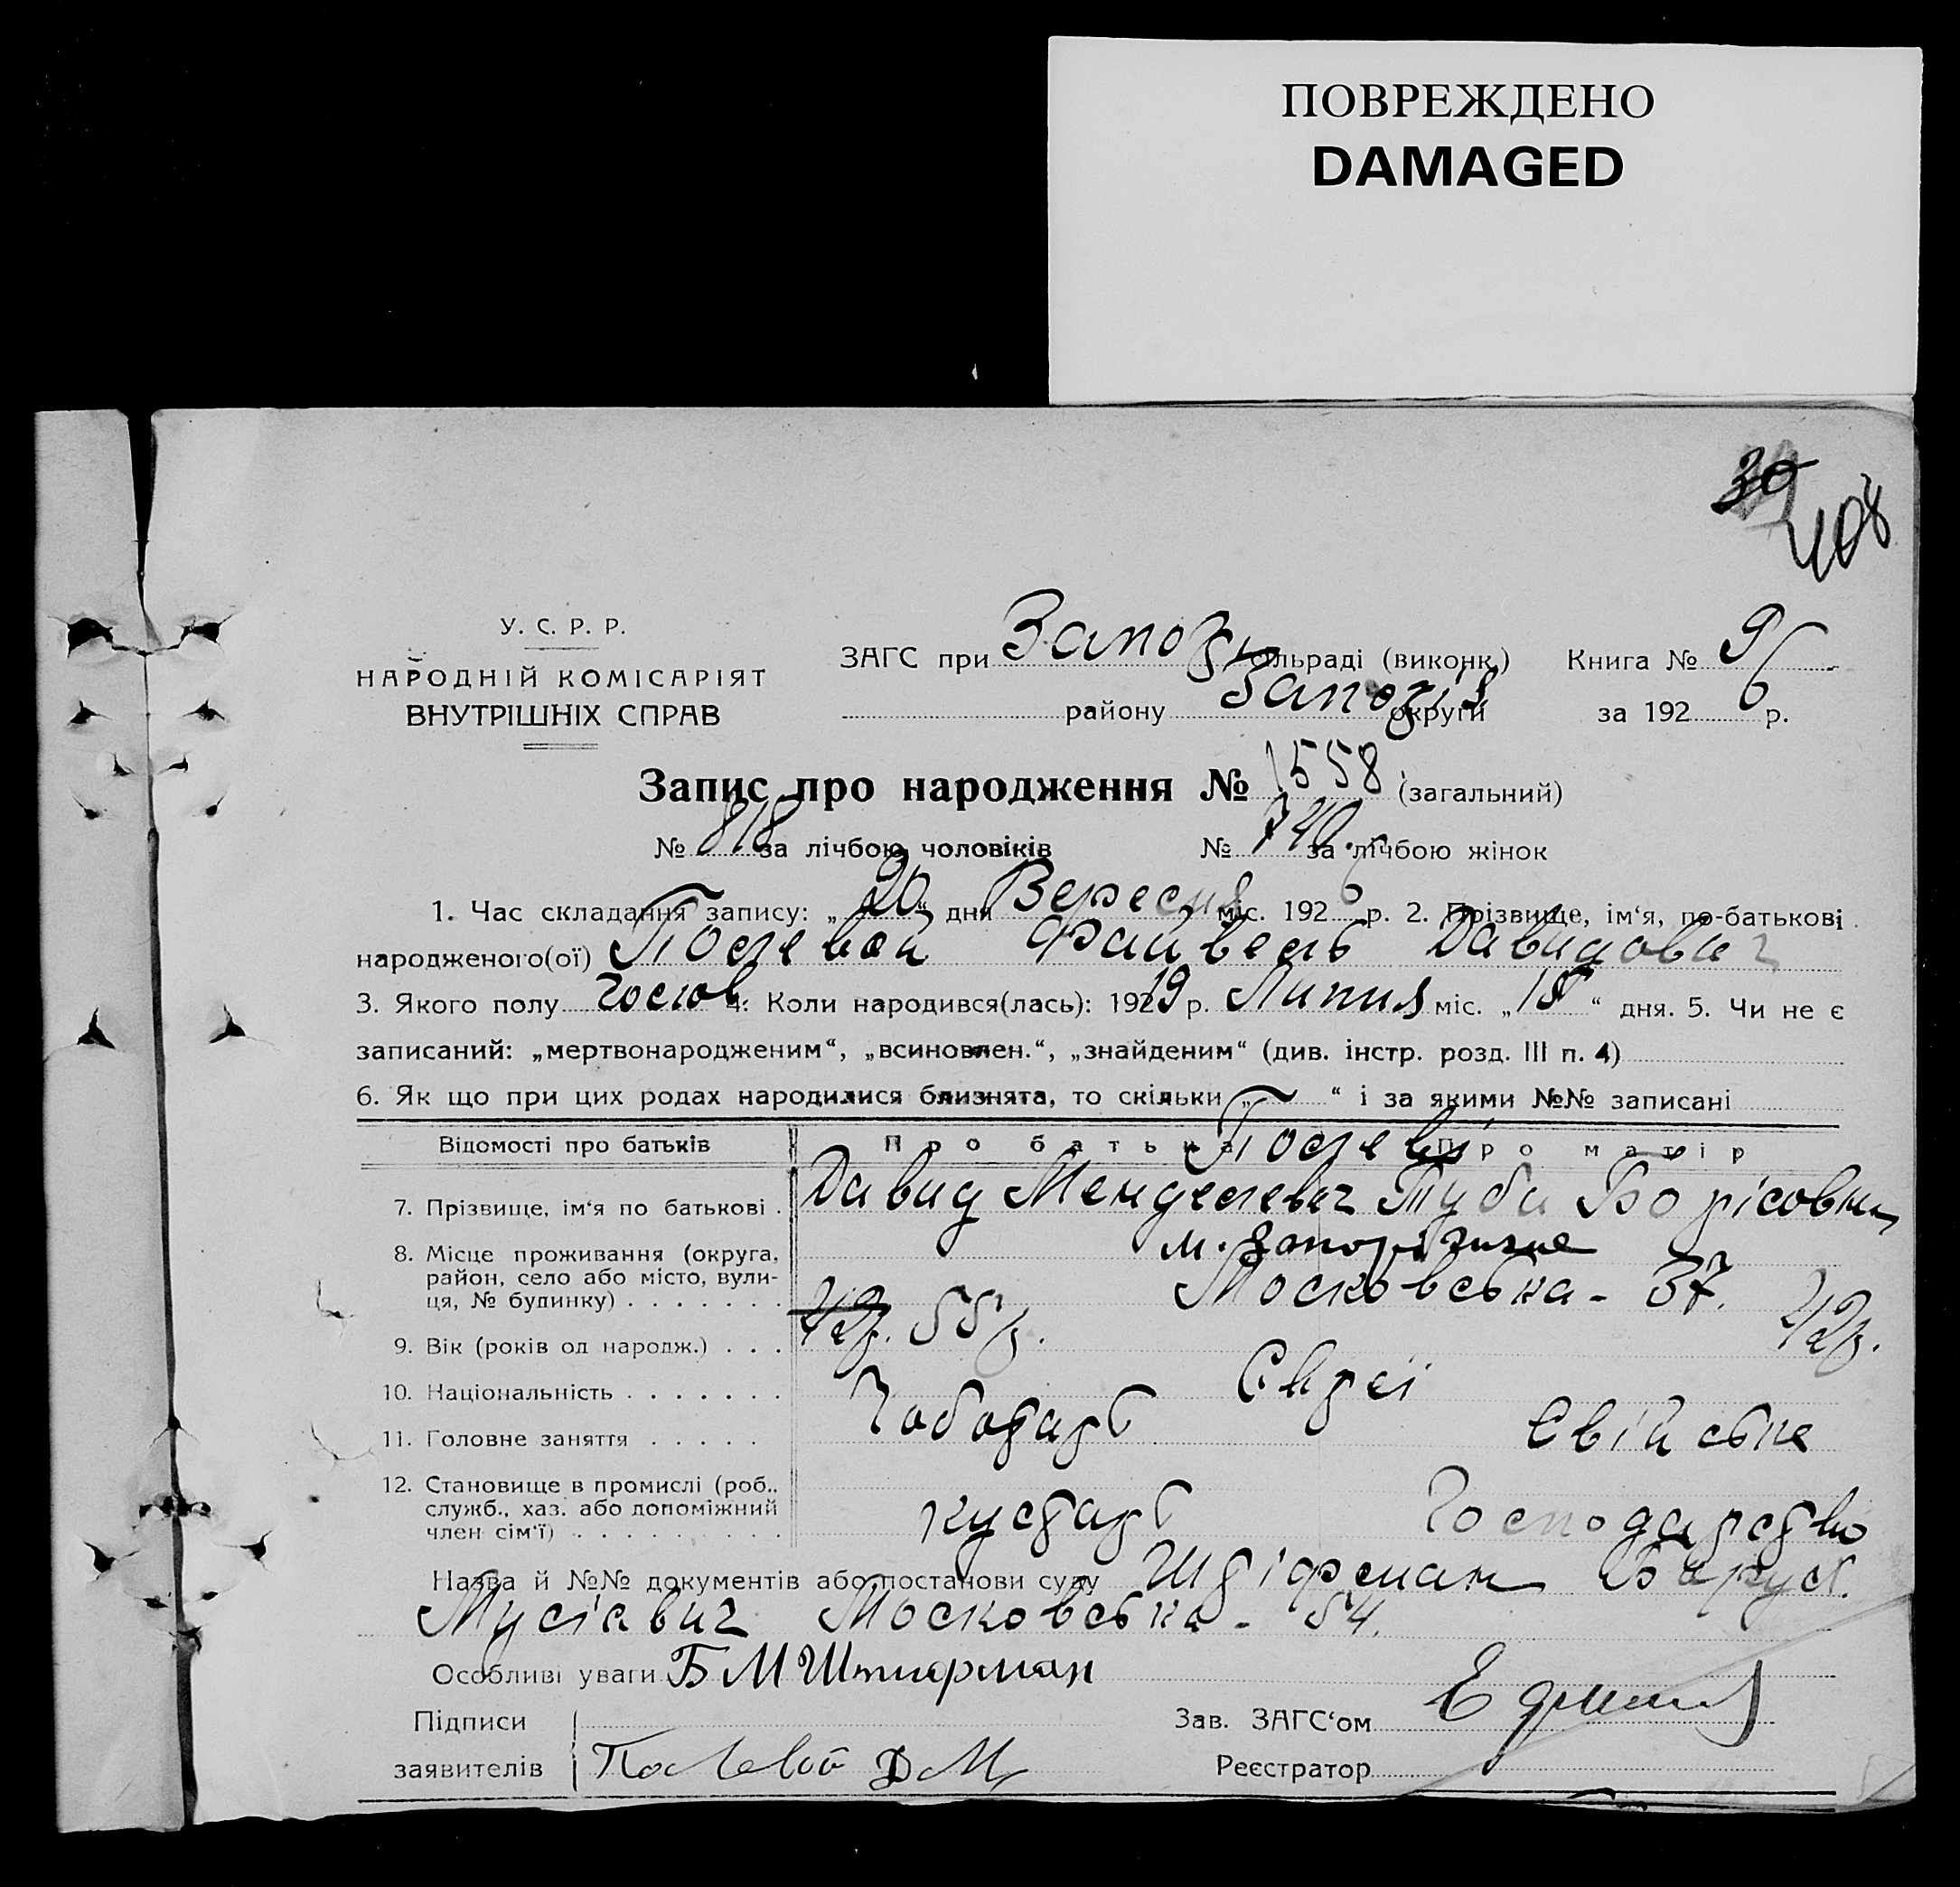 ПОВРЕЖДЕНО
DAMAGED
30
408
У. С. Р. Р.
НАРОДНІЙ КОМІСАРІЯТ
ВНУТРІШНІХ СПРАВ
ЗАГС при Запоріз сільраді (виконк.) Книга № 9
району Запоріз округи за 1926 р.
Запис про народження № 1558 (загальний)
№ 818 за лічбою чоловіків № 740 за лічбою жінок
1. Час складання запису: „20“ дня Вересня міс. 1926 р. 2. Прізвище, ім‘я, по-батькові
народженого(ої) Полевой Файвель Давидович
3. Якого полу Чолов 4. Коли народився(лась): 19219 р. Липня міс. „18“ дня. 5. Чи не є
записаний: „мертвонародженим“, „всиновлен.“, „знайденим“ (див. інстр. розд. III п. 4)
6. Як що при цих родах народилися близнята, то скільки „ “ і за якими №№ записані
Відомості про батьків Про батька Про матір
Полеві
7. Прізвище, ім‘я по батькові . Давид Менделевич Туба Борісовна
8. Місце проживання (округа, м. Запоріжжя
район, село або місто, вули-
ця, № будинку) . . . . . . . Московська - 37.
9. Вік (років од народж.) . . . 42р. 55р. 42р.
10. Національність . . . . . . . Євреї
11. Головне заняття . . . . . Чоботарь Євійське
12. Становище в промислі (роб.,
служб., хаз. або допоміжний
член сім‘ї) . . . . . . . . . кустарь Господарство
Назва й №№ документів або постанови суду Штіфман Борух
Мусієвич Московська - 54.
Особливі уваги Б М Штифман
Підписи
заявителів Полевой Д М
Зав. ЗАГС‘ом
Реєстратор